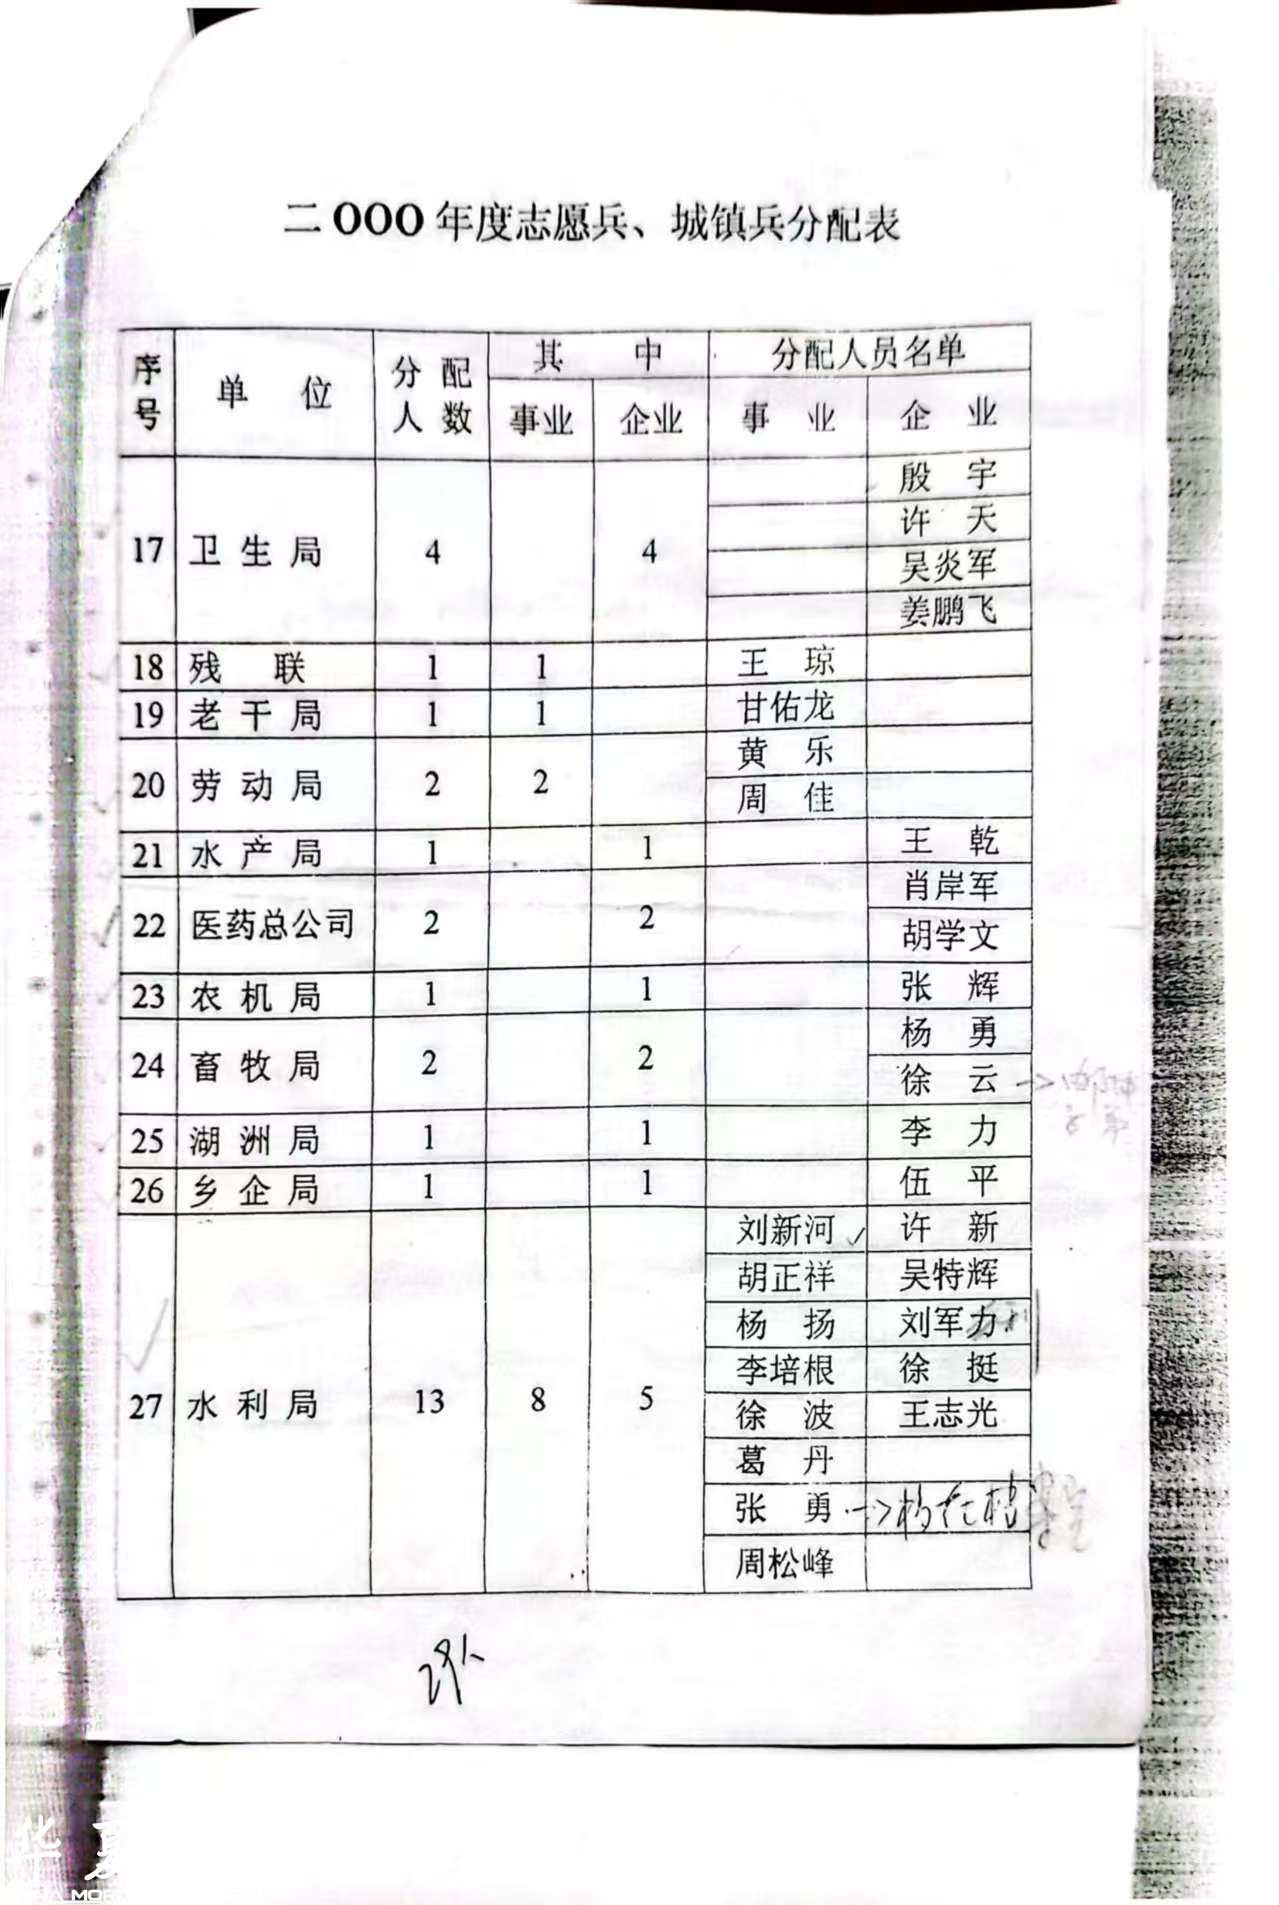 二OOO年度志愿兵、城镇兵分配表
序号 单 位 分配人数 其 中 分配人员名单
事业 企业 事 业 企 业
17 卫生局 4 4 殷 宇
许 天
吴炎军
姜鹏飞
18 残 联 1 1 王 琼
19 老干局 1 1 甘佑龙
20 劳动局 2 2 黄 乐
周 佳
21 水产局 1 1 王 乾
22 医药总公司 2 2 肖岸军
胡学文
23 农机局 1 1 张 辉
24 畜牧局 2 2 杨 勇
徐 云
25 湖洲局 1 1 李 力
26 乡企局 1 1 伍 平
27 水利局 13 8 5 刘新河 许 新
胡正祥 吴特辉
杨 扬 刘军力
李培根 徐 挺
徐 波 王志光
葛 丹
张 勇
周松峰
华夏